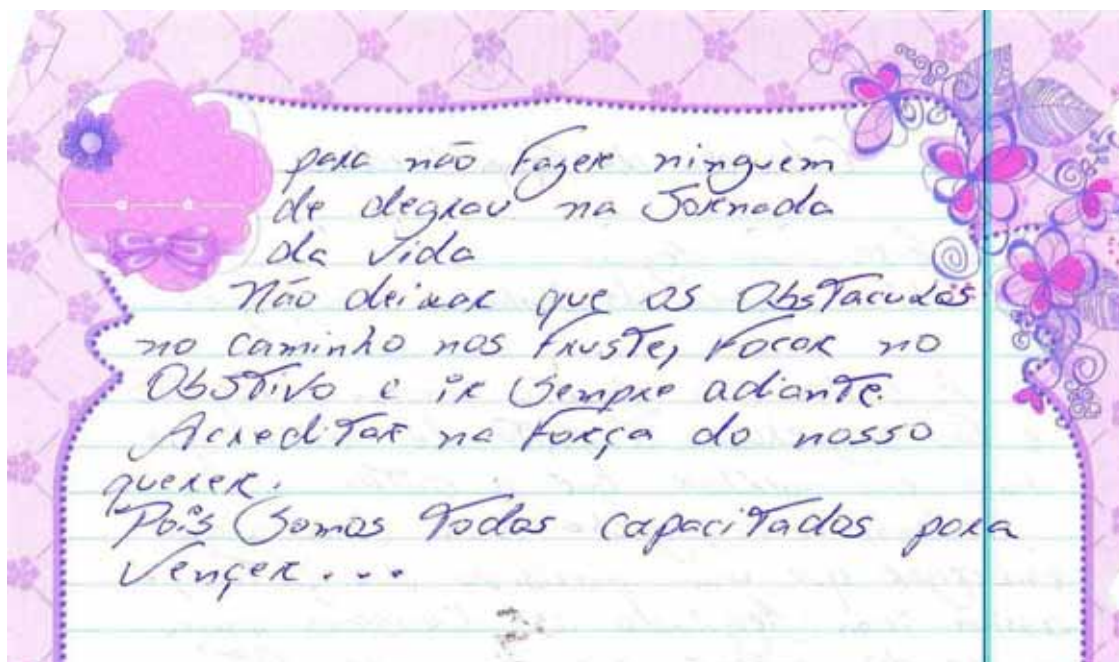 para não Fazer ninguem
de degrau na Jornada
da vida
Não deixar que os Obstaculos
no caminho nos Fruste, Focar no
Obstivo e ir Sempre adiante.
Acreditar na Força do nosso
querer.
Pois Somos Todos capacitados para
Vençer...